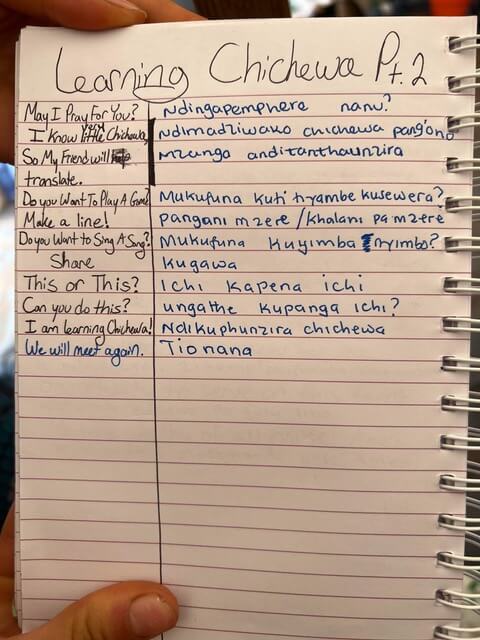 Learning Chichewa Pt. 2
May I Pray For You? Ndingapemphere nanu?
I know very little Chichewa, Ndimadziwako chichewa pang'ono
So My Friend will mzanga anditanthaunzira
translate.
Do you Want To Play A Game? Mukufuna kuti tiyambe kusewera?
Make a line! pangani mzere / khalani pa mzere
Do you Want to Sing A Song? Mukufuna kuyimba nyimbo?
Share kugawa
This or This? Ichi kapena ichi
Can you do this? ungathe kupanga ichi?
I am learning Chichewa! Ndikuphunzira chichewa
We will meet again. Tionana